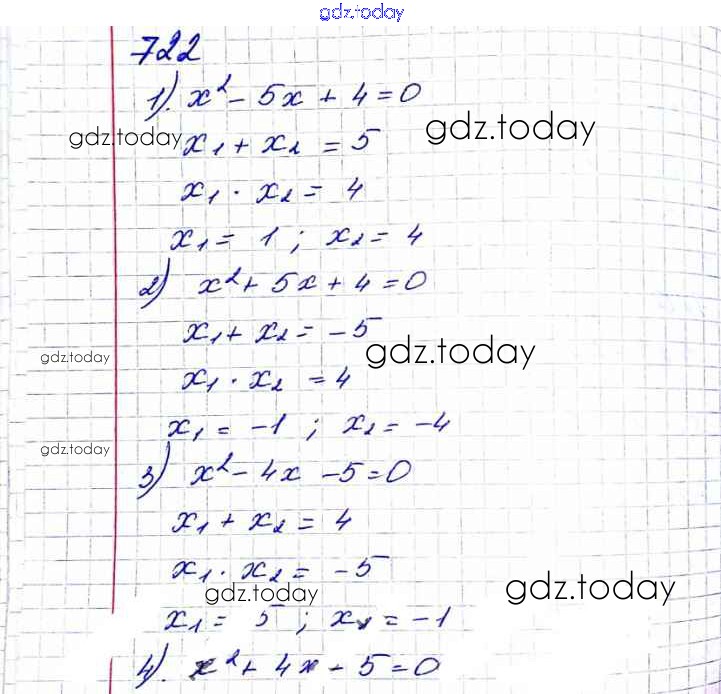 gdz.today
722
1). x² - 5x + 4 = 0
gdz.today
gdz.today
x₁ + x₂ = 5
x₁ · x₂ = 4
x₁ = 1 ; x₂ = 4
2) x² + 5x + 4 = 0
x₁ + x₂ = -5
gdz.today
gdz.today
x₁ · x₂ = 4
x₁ = -1 ; x₂ = -4
gdz.today
3) x² - 4x - 5 = 0
x₁ + x₂ = 4
x₁ · x₂ = -5
gdz.today
gdz.today
x₁ = 5 ; x₂ = -1
4). x² + 4x - 5 = 0